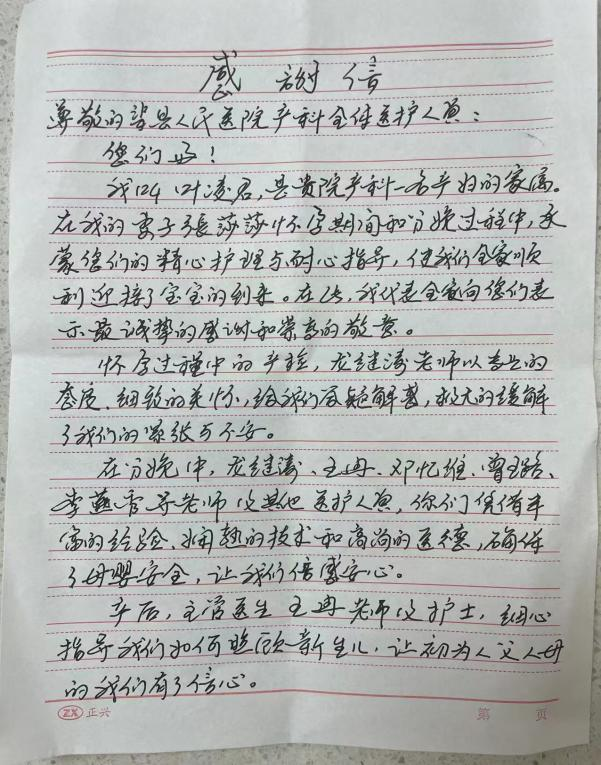 感谢信
尊敬的 县人民医院产科全体医护人员：
您们好！
我叫叶凌君，是贵院产科一名产妇的家属。
在我的妻子张莎莎怀孕期间和分娩过程中，承
蒙您们的精心护理与耐心指导，使我们全家顺
利迎接了宝宝的到来。在此，我代表全家向您们表
示最诚挚的感谢和崇高的敬意。
怀孕过程中的产检，龙继涛老师以专业的
态度、细致的关怀，给我们答疑解惑，极大的缓解
了我们的紧张与不安。
在分娩中，龙继涛、王冉、邓忆维、曾 、
李 等老师及其他医护人员，你们凭借丰
富的经验、娴熟的技术和高尚的医德，确保
了母婴安全，让我们倍感安心。
产后，主管医生王冉老师及护士，细心
指导我们如何照顾新生儿，让初为人父人母
的我们有了信心。
ZX 正兴 第 页